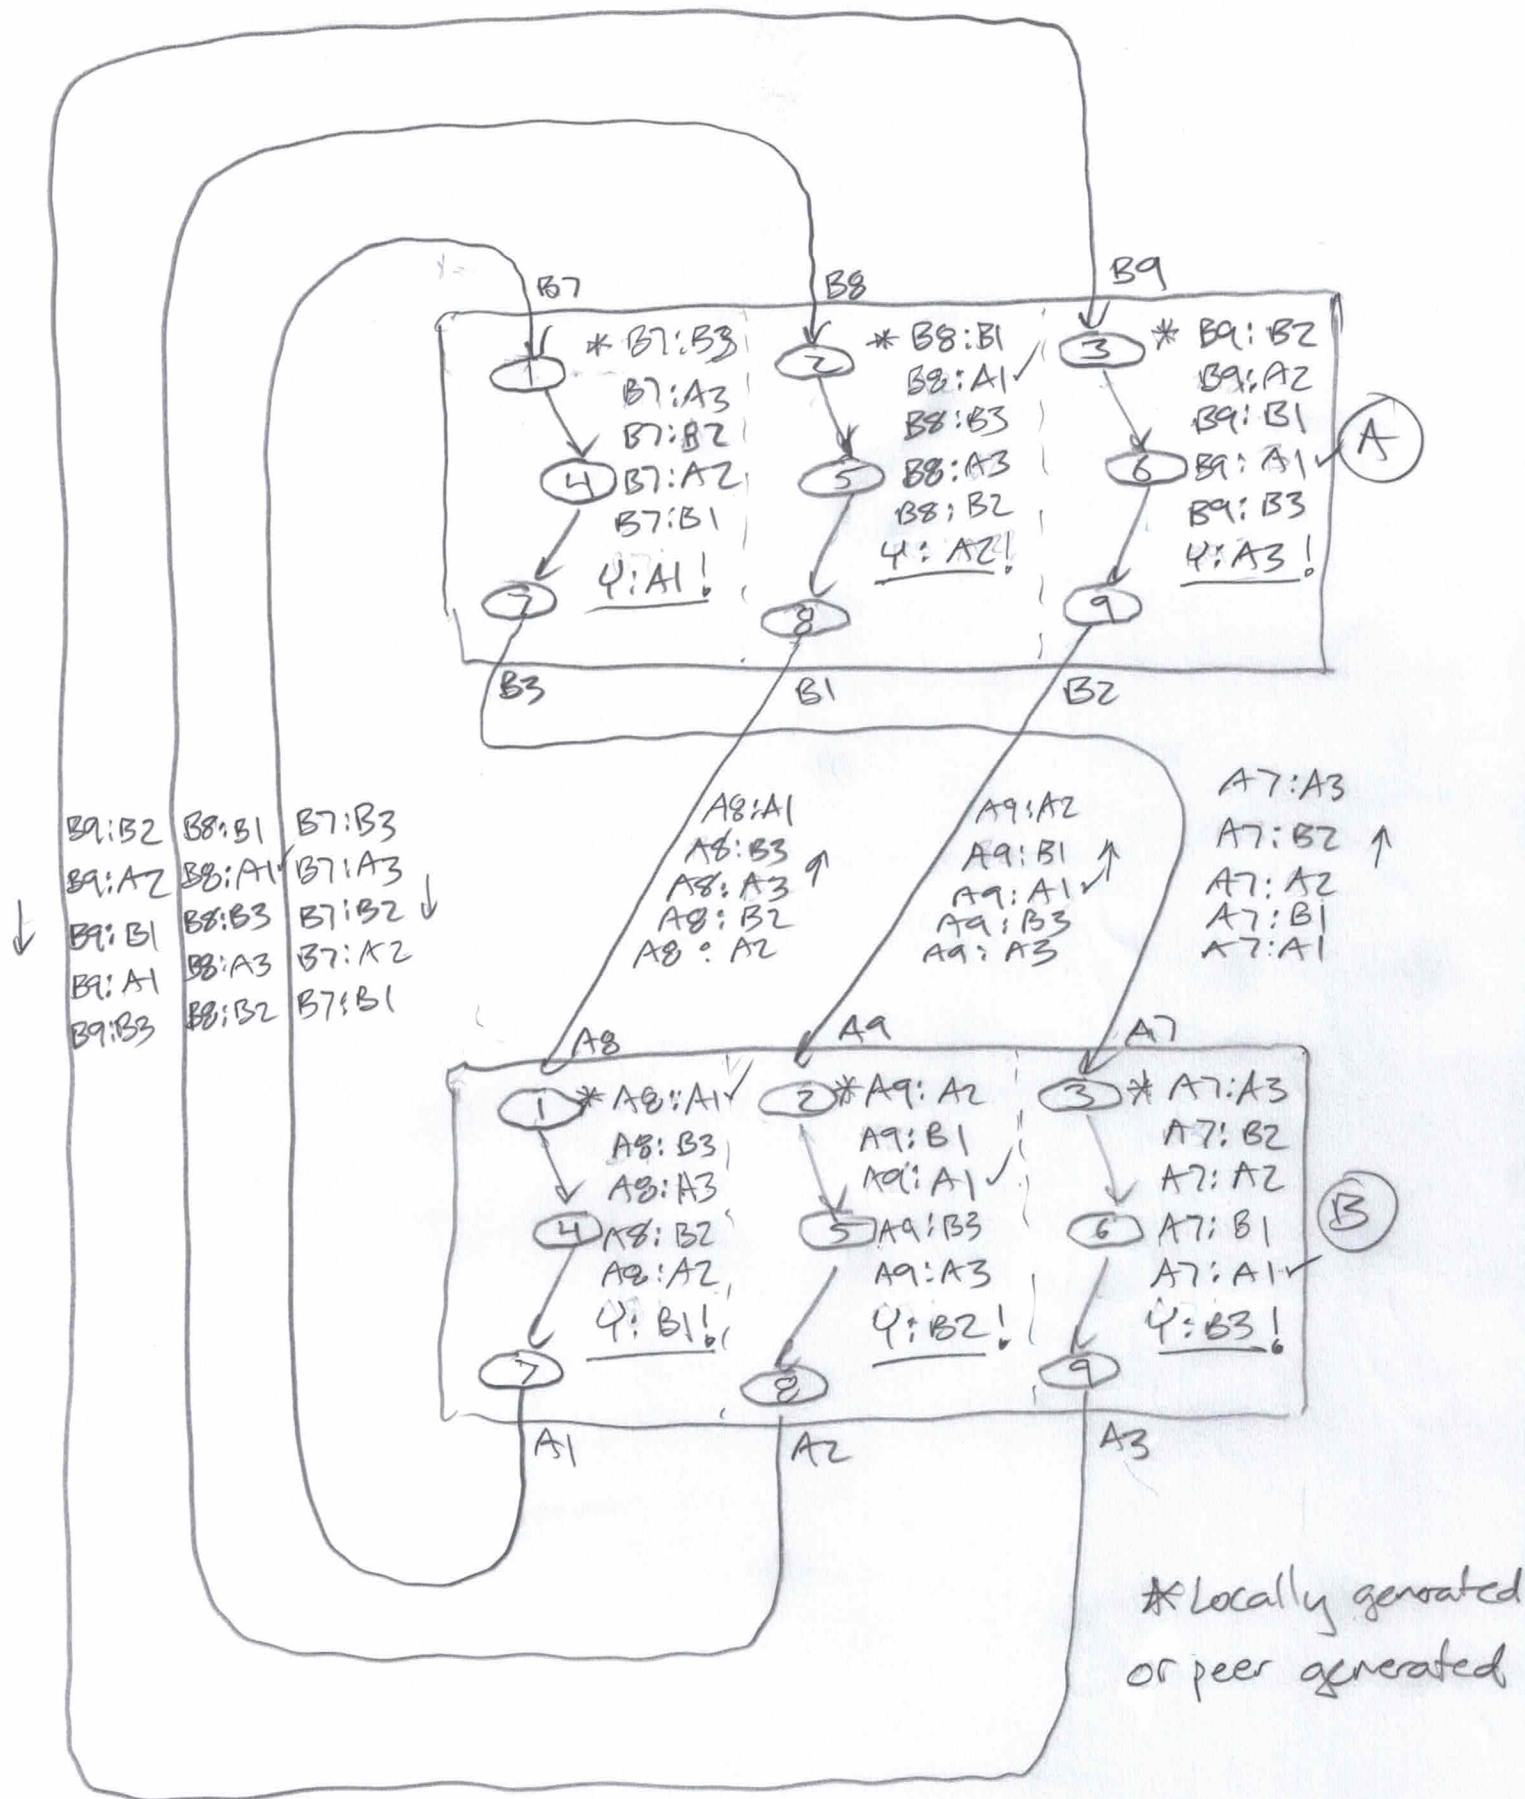 B7
B8
B9
1
* B7:B3
B7:A3
B7:B2
4
B7:A2
B7:B1
Y:A1!
7
2
* B8:B1
B8:A1✓
B8:B3
5
B8:A3
B8:B2
Y:A2!
8
3
* B9:B2
B9:A2
B9:B1
6
B9:A1✓
B9:B3
Y:A3!
9
A
B3
B1
B2
B9:B2
B9:A2
↓
B9:B1
B9:A1
B9:B3
B8:B1
B8:A1✓
B8:B3
B8:A3
B8:B2
B7:B3
B7:A3
B7:B2 ↓
B7:A2
B7:B1
A8:A1
A8:B3
A8:A3 ↑
A8:B2
A8:A2
A9:A2
A9:B1 ↑
A9:A1✓
A9:B3
A9:A3
A7:A3
A7:B2 ↑
A7:A2
A7:B1
A7:A1
A8
A9
A7
1
* A8:A1✓
A8:B3
A8:A3
4
A8:B2
A8:A2
Y:B1!
7
2
* A9:A2
A9:B1
A9:A1✓
5
A9:B3
A9:A3
Y:B2!
8
3
* A7:A3
A7:B2
A7:A2
6
A7:B1
A7:A1✓
Y:B3!
9
B
A1
A2
A3
* Locally generated
or peer generated